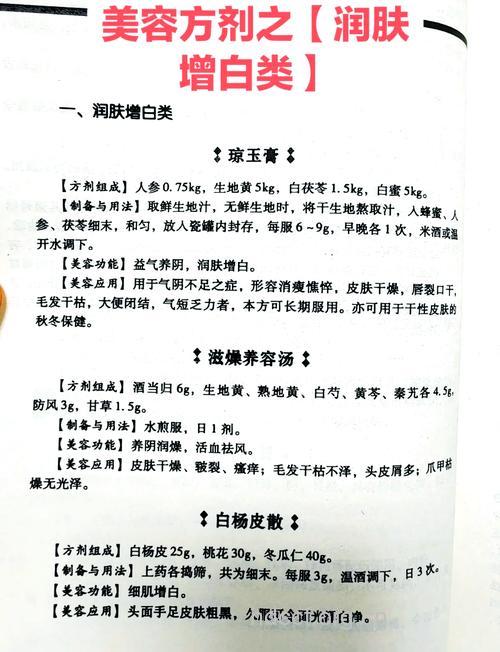 美容方剂之【润肤
增白类】
一、润肤增白类
琼玉膏
【方剂组成】人参0.75kg，生地黄5kg，白茯苓1.5kg，白蜜5kg。
【制备与用法】取鲜生地汁，无鲜生地时，将干生地熬取汁，人蜂蜜、人
参、茯苓细末，和匀，放人瓷罐内封存，每服6～9g，早晚各1次，米酒或温
开水调下。
【美容功能】益气养阴，润肤增白。
【美容应用】用于气阴不足之症，形容消瘦憔悴，皮肤干燥，唇裂口干，
毛发干枯，大便闭结，气短乏力者，本方可长期服用。亦可用于干性皮肤的
秋冬保健。
滋燥养容汤
【方剂组成】酒当归6g，生地黄、熟地黄、白芍、黄芩、秦艽各4.5g，
防风3g，甘草1.5g。
【制备与用法】水煎服，日1剂。
【美容功能】养阴润燥，活血祛风。
【美容应用】皮肤干燥、皲裂、瘙痒；毛发干枯不泽，头皮屑多；爪甲枯
燥无光泽。
白杨皮散
【方剂组成】白杨皮25g，桃花30g，冬瓜仁40g。
【制备与用法】上药各捣筛，共为细末。每服3g，温酒调下，日3次。
【美容功能】细肌增白。
【美容应用】头面手足皮肤粗黑，久服可令面光洁白净。